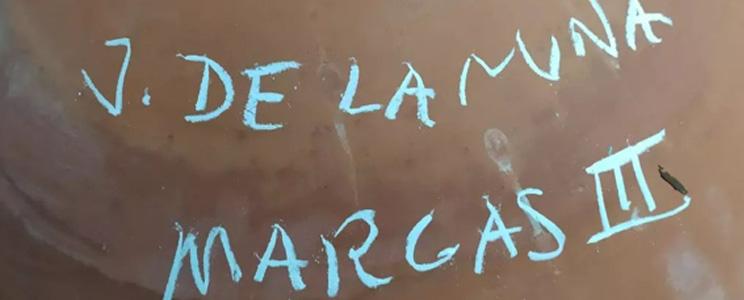 J. DE LA NUNA
MARGAS III